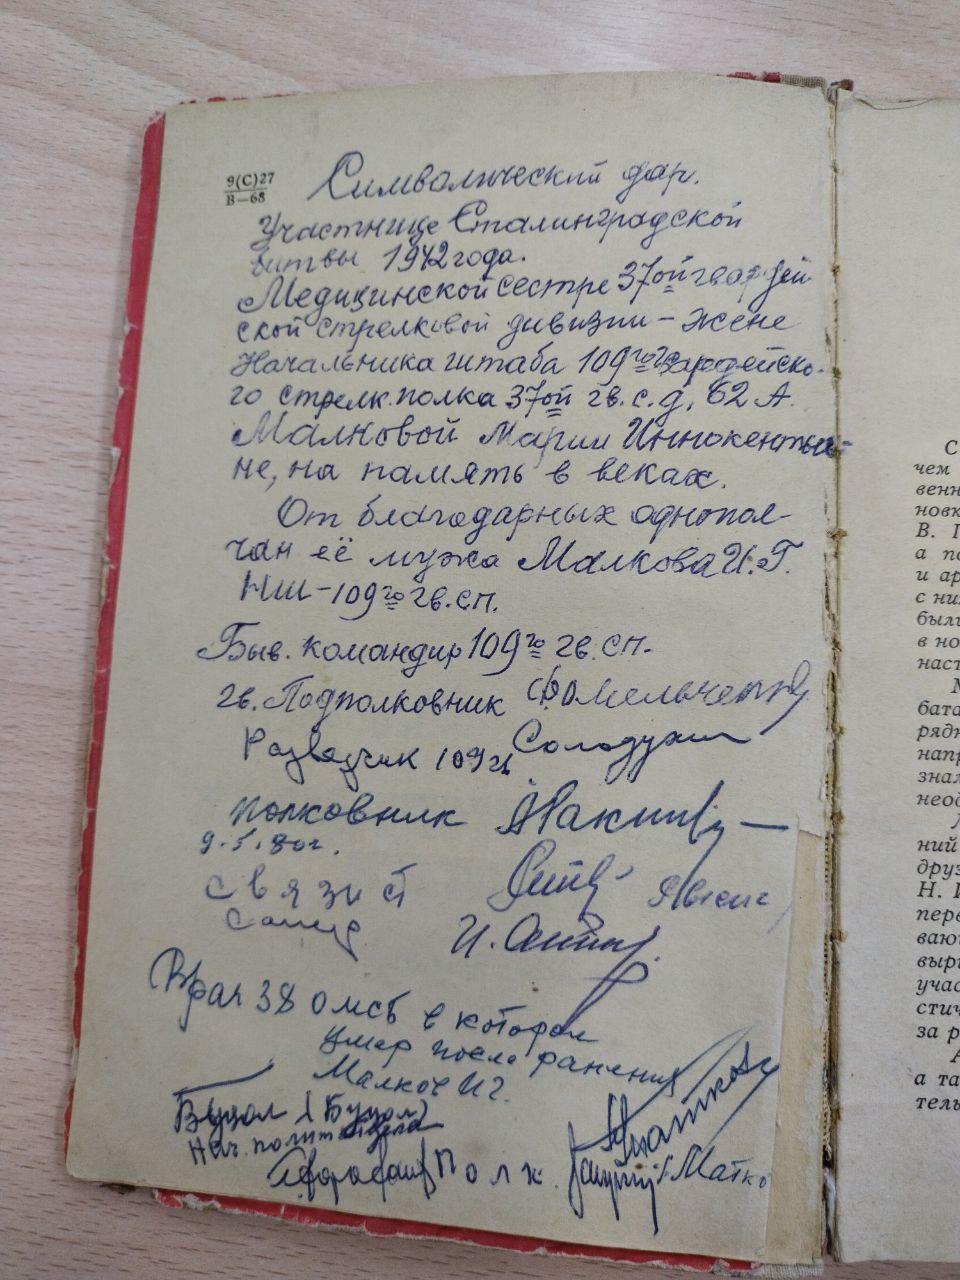 9(С)27
В—68
Символический дар.
Участнице Сталинградской
битвы 1942 года.
Медицинской сестре 37ой гвардей-
ской стрелковой дивизии – жене
Начальника штаба 109го гвардейско-
го стрелк. полка 37ой гв. с. д. 62 А.
Малковой Марии Иннокентьев-
не, на память в веках.
От благодарных однопол-
чан её мужа Малкова И. Г.
НШ – 109го гв. сп.
Быв. командир 109го гв. сп.
гв. Подполковник Омельченко
Разведчик 109
полковник
9.5.80г.
связист
И.
Врач 38 омсб в котором
умер после ранения
Малков И Г.
Буцол (Буцол)
Нач. полит отдела
Полк.
С
чем
венн
новк
В. Г
а по
и ар
с ни
были
в но
наст
М
бата
рядн
напр
знал
неод
Л
ний
друз
Н. И
пере
ваю
выр
учас
стич
за р
А
а та
тель